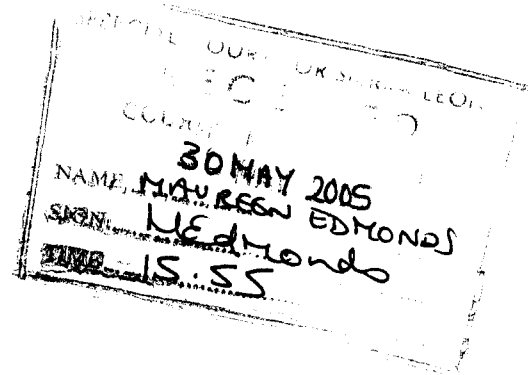 SPECIAL COURT FOR SIERRA LEONE
RECEIVED
COURT
30 MAY 2005
NAME MAUREEN EDMONDS
SIGN MEdmonds
TIME 15.55